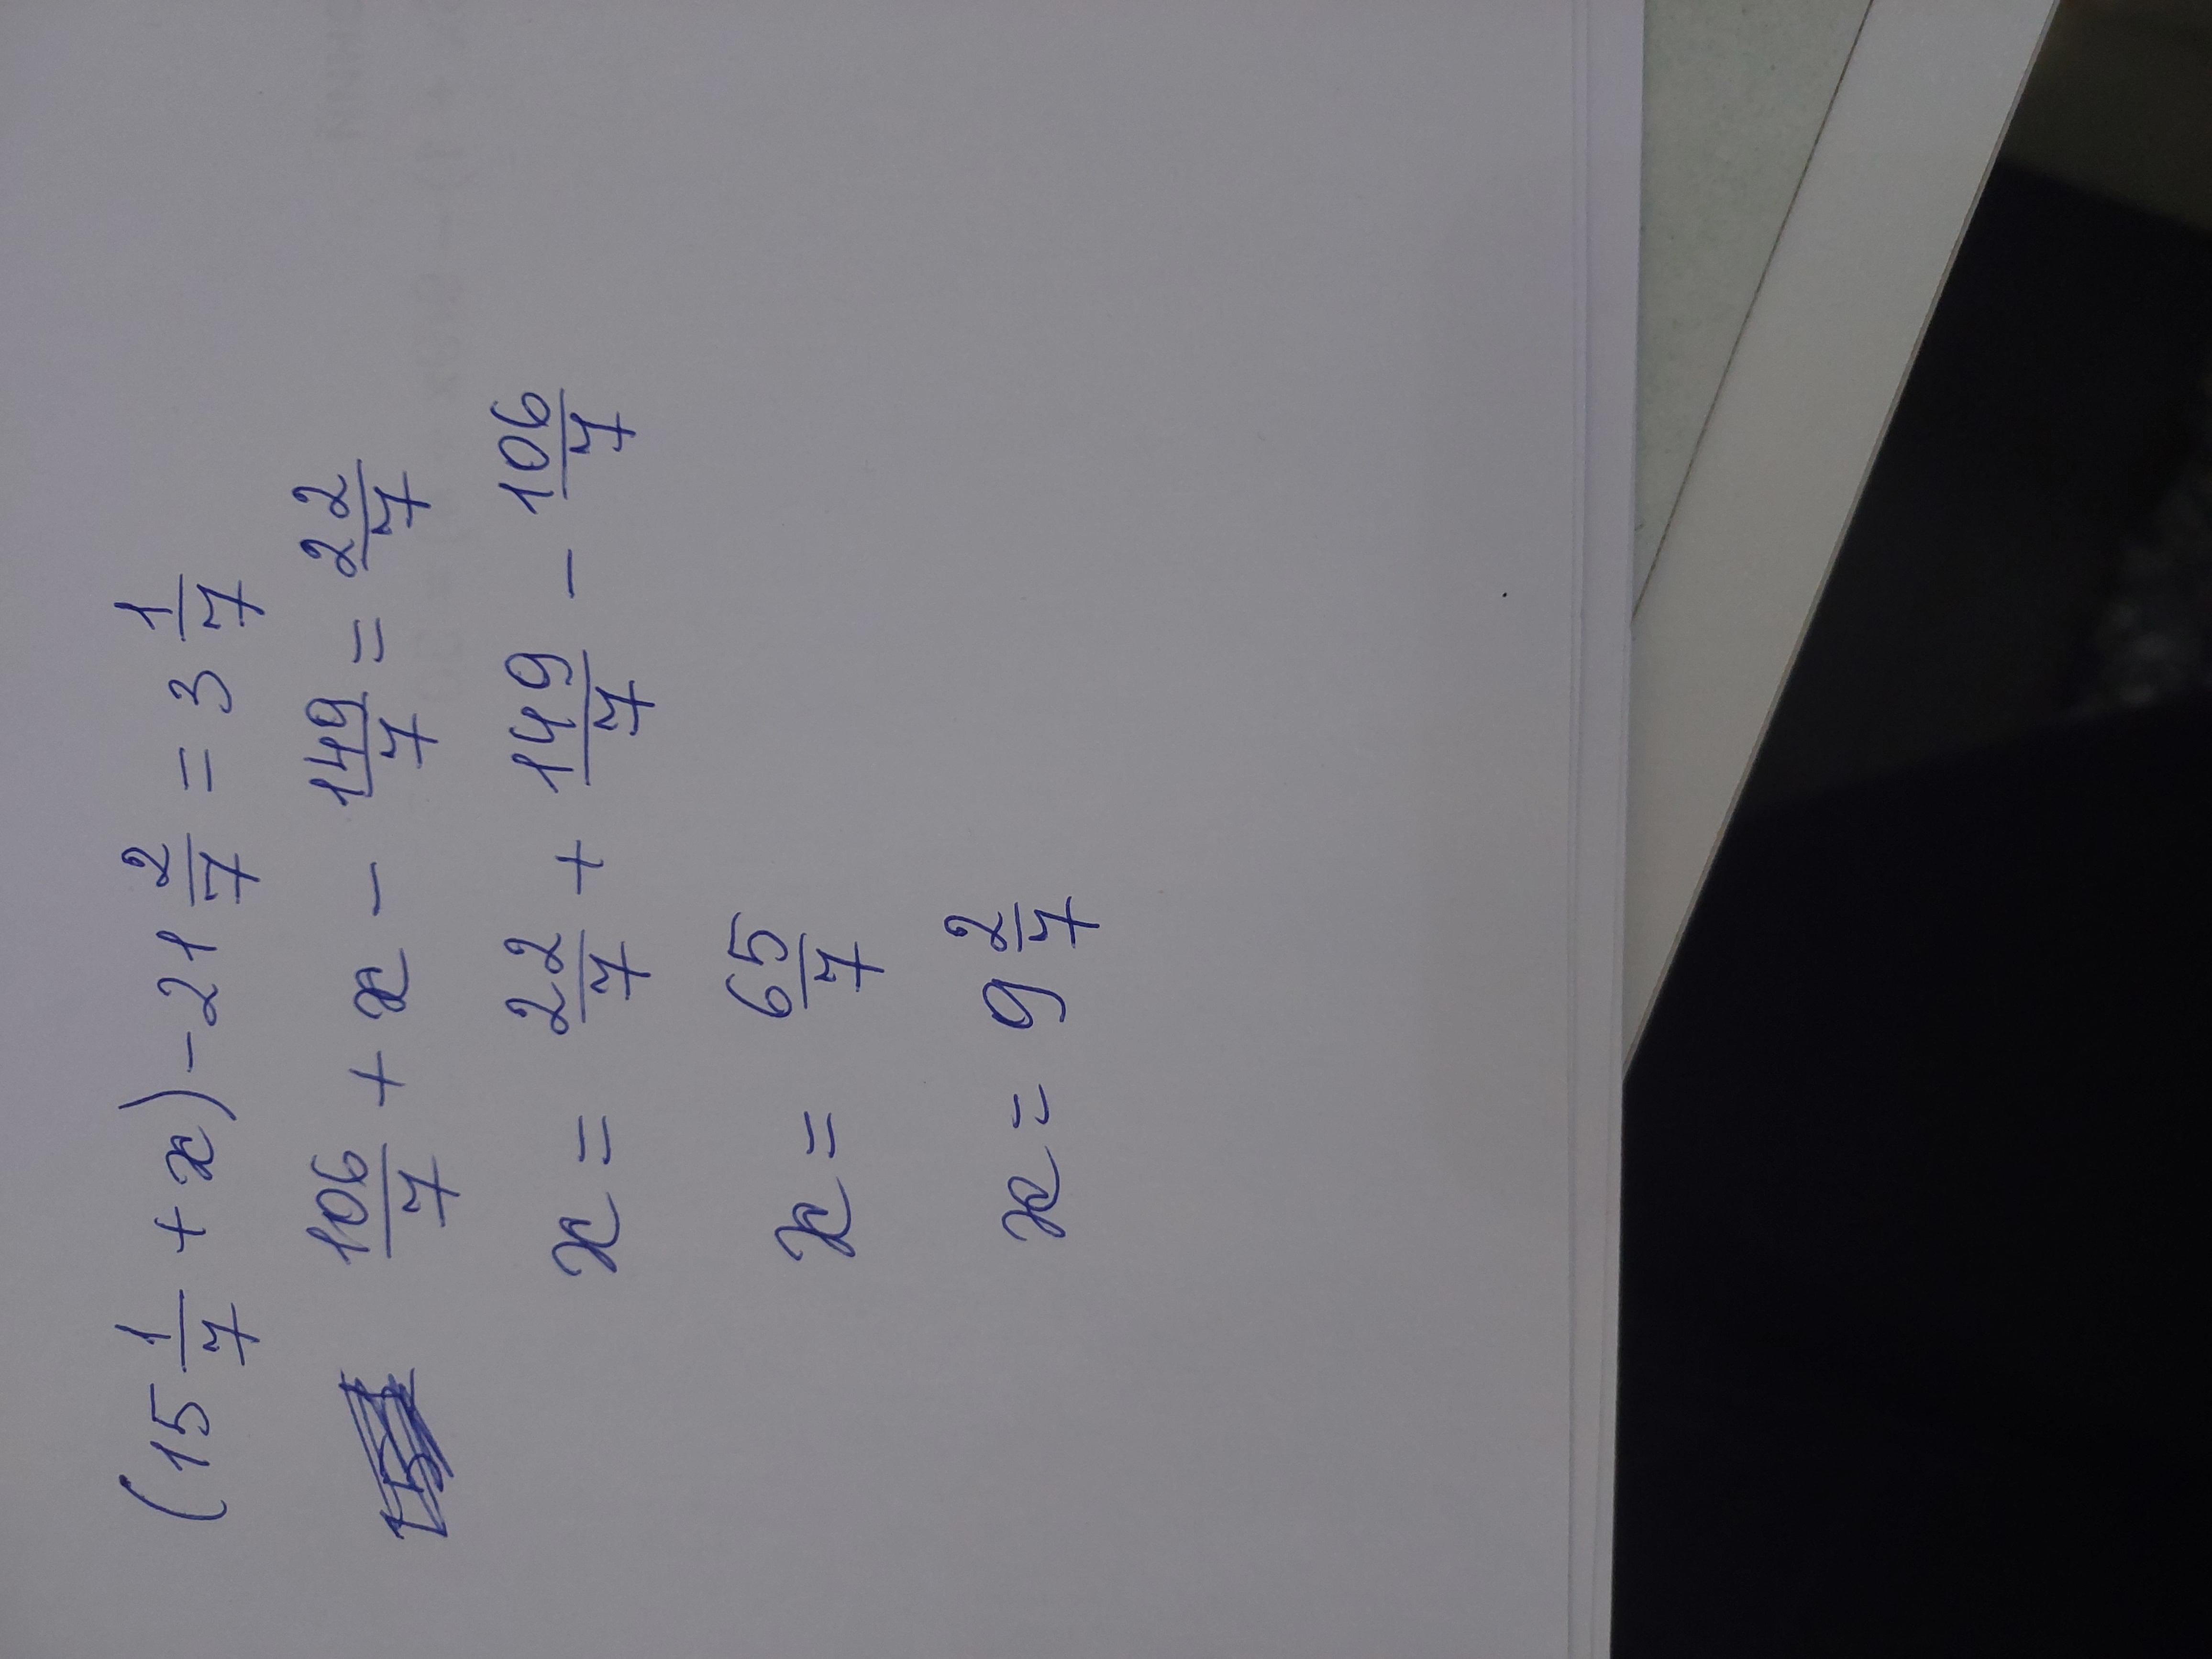 (15 1/7 + x) - 21 2/7 = 3 1/7
106/7 + x - 149/7 = 22/7
x = 22/7 + 149/7 - 106/7
x = 65/7
x = 9 2/7